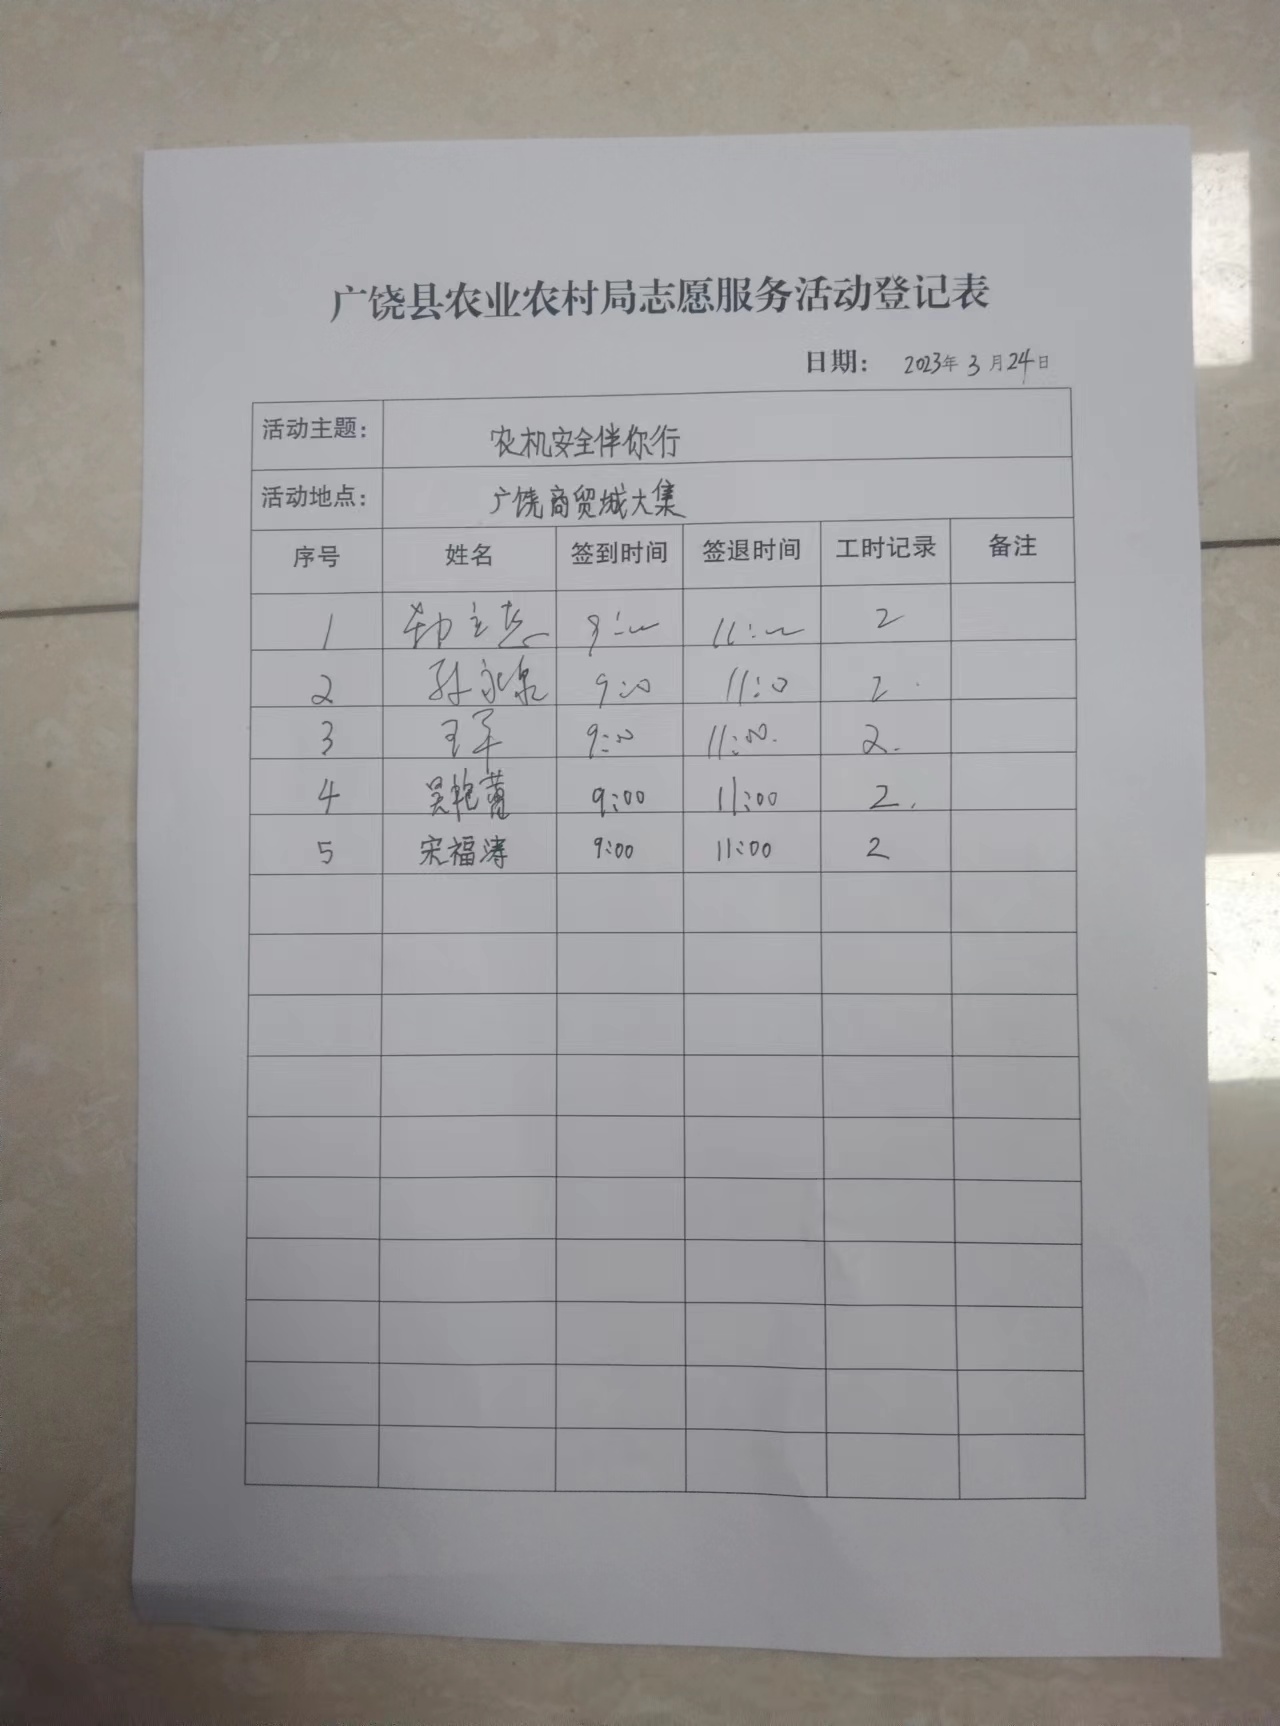 广饶县农业农村局志愿服务活动登记表
日期: 2023年 3月24日
活动主题: 农机安全伴你行
活动地点: 广饶商贸城大集
序号 姓名 签到时间 签退时间 工时记录 备注
1 9:00 11:00 2
2 孙永泉 9:00 11:00 2
3 王军 9:00 11:00. 2.
4 吴艳蕾 9:00 11:00 2.
5 宋福涛 9:00 11:00 2